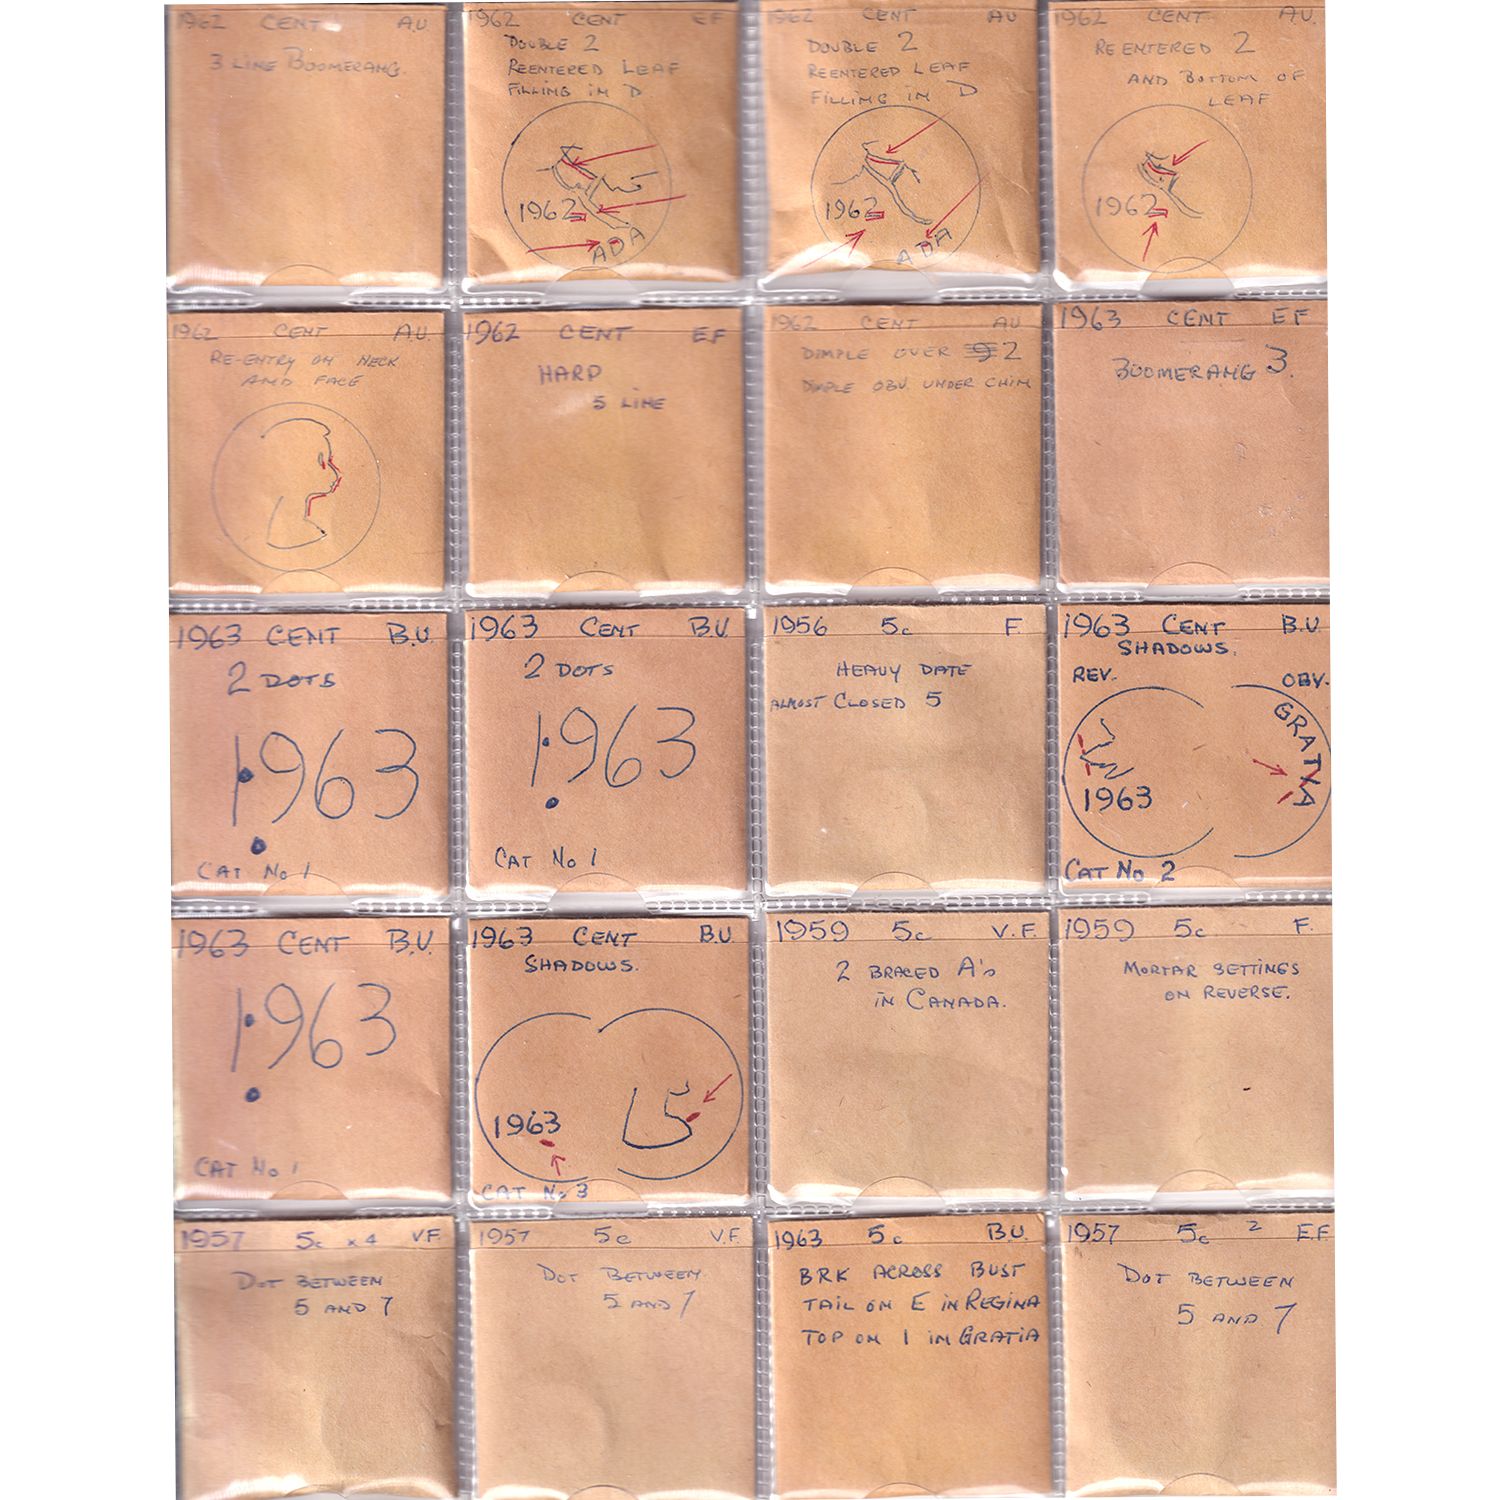 1962 CENT A.U
3 LINE BOOMERANG.
1962 CENT EF
DOUBLE 2
REENTERED LEAF
FILLING IN D
1962
ADA
1962 CENT AU
DOUBLE 2
REENTERED LEAF
FILLING IN D
1962
ADA
1962 CENT AU.
REENTERED 2
AND BOTTOM OF
LEAF
1962
1962 CENT AU.
RE-ENTRY ON NECK
AND FACE
1962 CENT EF
HARP
5 LINE
1962 CENT AU
DIMPLE OVER 2
DIMPLE OBV. UNDER CHIN
1963 CENT EF
BOOMERANG 3.
1963 CENT B.U.
2 DOTS
1963
CAT No 1
1963 CENT B.U
2 DOTS
1963
CAT No 1
1956 5c F.
HEAVY DATE
ALMOST CLOSED 5
1963 CENT B.U.
SHADOWS.
REV. OBV.
GRATIA
1963
CAT No 2
1963 CENT B.U.
1963
CAT No 1
1963 CENT B.U.
SHADOWS.
1963
CAT No 3
1959 5c V.F.
2 BRACED A's
IN CANADA.
1959 5c F.
MORTAR SETTINGS
ON REVERSE.
1957 5c x4 VF
DOT BETWEEN
5 AND 7
1957 5c V.F.
DOT BETWEEN
5 AND 7
1963 5c B.U.
BRK ACROSS BUST
TAIL ON E IN REGINA
TOP ON I IN GRATIA
1957 5c 2 E.F.
DOT BETWEEN
5 AND 7